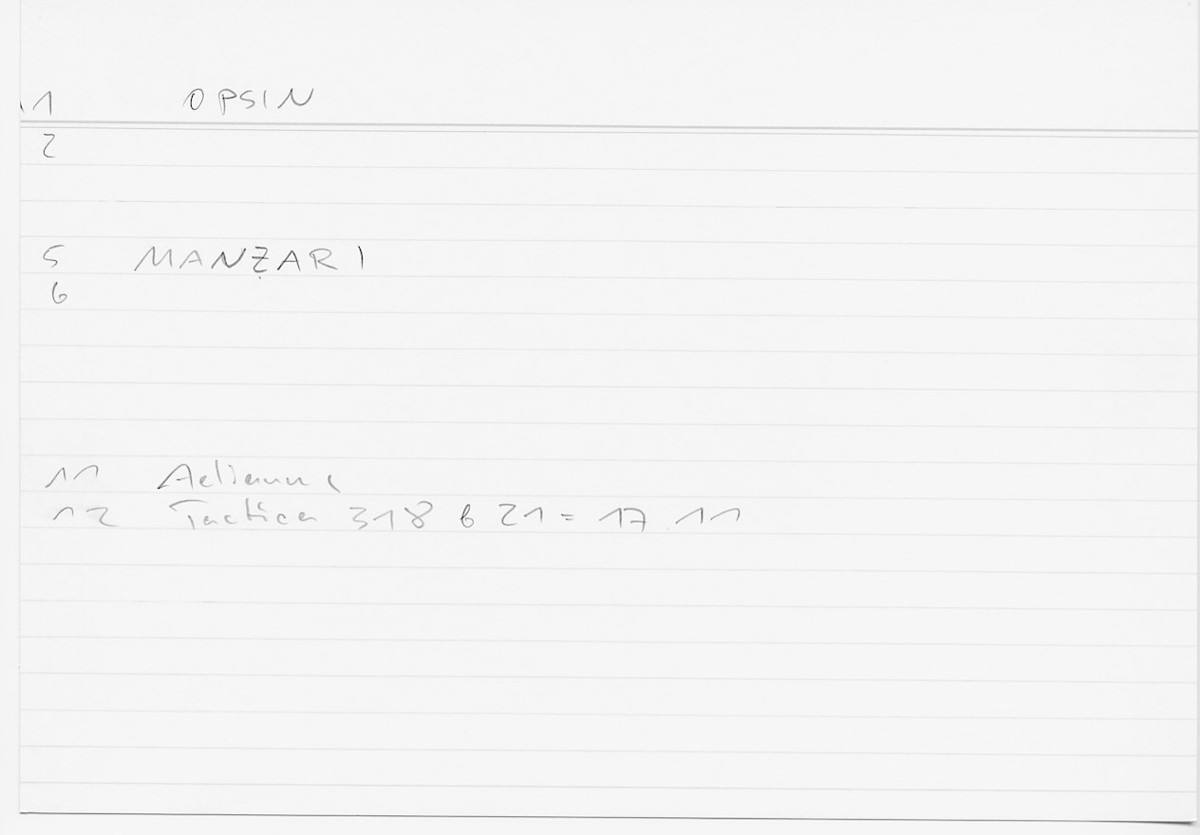 1 OPSIN
2
5 MANẒARI
6
11 Aelianus
12 Tactica 318 b 21 = 17 11